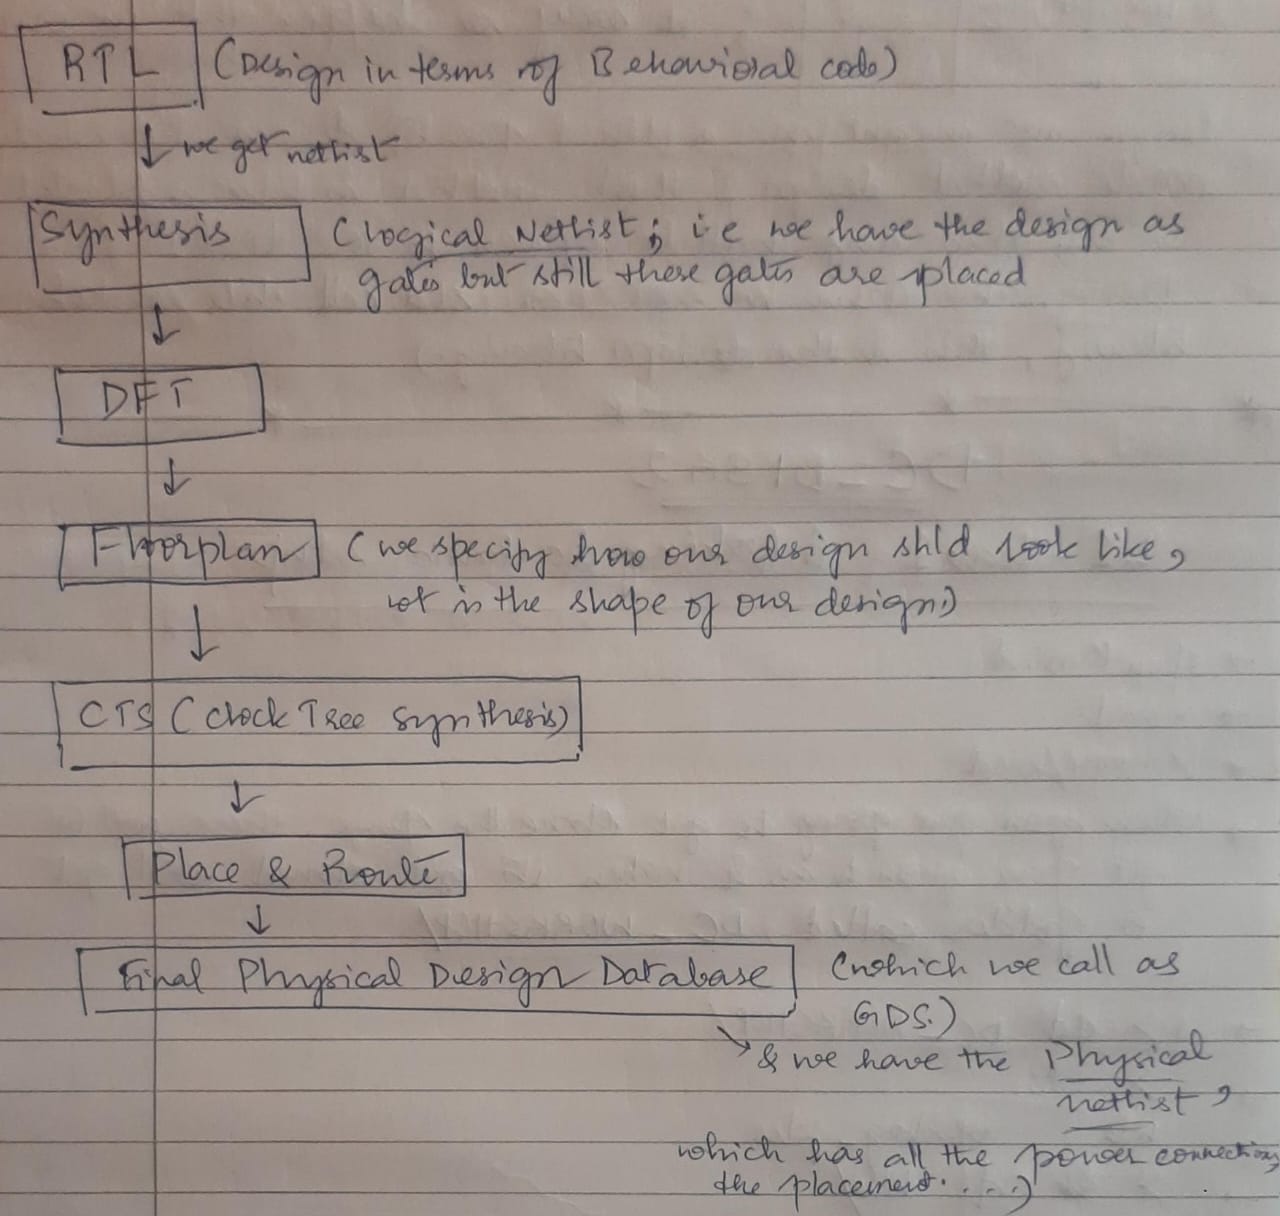 RTL (Design in terms of Behavioral code)
↓ we get netlist
Synthesis (Logical Netlist; i.e we have the design as
gates but still these gates are placed
↓
DFT
↓
Floorplan (we specify how our design shld look like,
wt is the shape of our design.)
↓
CTS (Clock Tree Synthesis)
↓
Place & Route
↓
Final Physical Design Database (which we call as
GDS.)
↘ & we have the Physical
netlist,
which has all the power connections,
the placement. . . .)